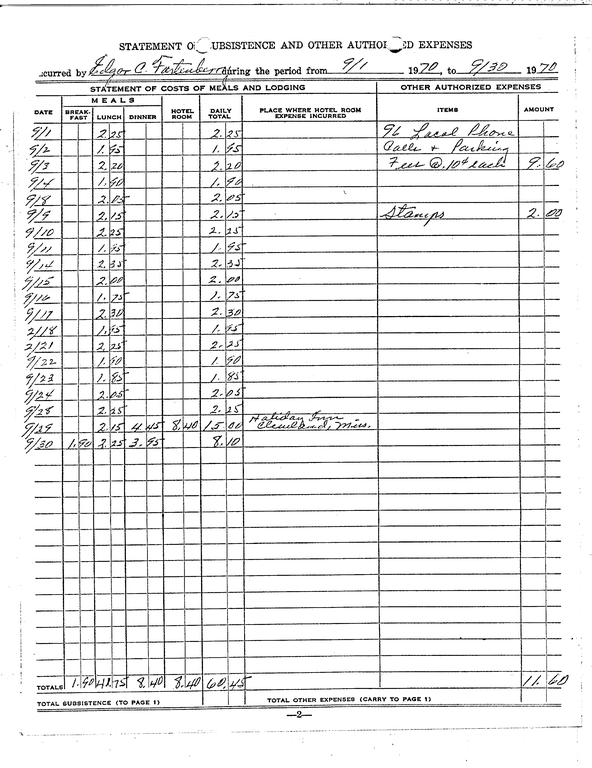 STATEMENT O UBSISTENCE AND OTHER AUTHOR ED EXPENSES
curred by Edgar C. during the period from 9/1 1970, to 9/30 1970
STATEMENT OF COSTS OF MEALS AND LODGING OTHER AUTHORIZED EXPENSES
MEALS
DATE BREAK-FAST LUNCH DINNER HOTEL ROOM DAILY TOTAL PLACE WHERE HOTEL ROOM EXPENSE INCURRED ITEMS AMOUNT
9/1 2.25 2.25 96 Local Phone
9/2 1.95 1.95 Calls + Parking
9/3 2.20 2.20 Fees @.10¢ each 9.60
9/4 1.90 1.90
9/8 2.05 2.05
9/9 2.15 2.15 Stamps 2.00
9/10 2.25 2.25
9/11 1.95 1.95
9/14 2.35 2.35
9/15 2.00 2.00
9/16 1.75 1.75
9/17 2.30 2.30
9/18 1.95 1.95
9/21 2.25 2.25
9/22 1.90 1.90
9/23 1.85 1.85
9/24 2.05 2.05
9/28 2.25 2.25
Holiday Inn
9/29 2.15 4.45 8.40 15.00 Cleveland, Miss.
9/30 1.90 2.25 3.95 8.10
TOTALS 1.90 41.75 8.40 8.40 60.45 11.60
TOTAL SUBSISTENCE (TO PAGE 1) TOTAL OTHER EXPENSES (CARRY TO PAGE 1)
—2—